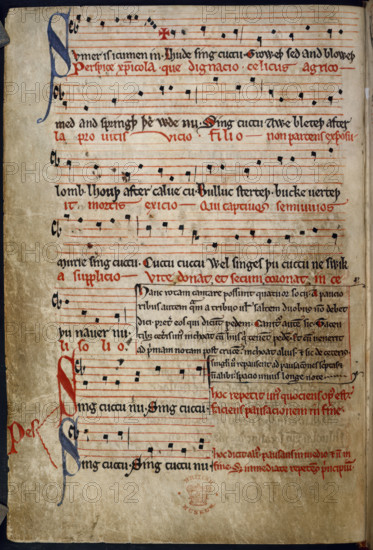 Sumer is icumen in. Lhude sing cuccu. Groweþ sed and bloweþ
Perspice xp̄icola. que dignacio. celicus agrico-
med and springþ þe wde nu. Sing cuccu Awe bleteþ after
la pro uitis vicio filio non parcens exposu-
lomb. lhouþ after calue cu. Bulluc sterteþ. bucke uerteþ
it mortis exicio Qui captiuos semiuiuos
murie sing cuccu. Cuccu cuccu Wel singes þu cuccu ne swik
a supplicio Vite donat et secum coronat in ce-
þu nauer nu.
li solio.
Hanc rotam cantare possunt quatuor socij. A paucio
ribus autem quam a tribus uel saltem duobus non debet
dici. preter eos qui dicunt pedem. Canitur autem sic. Tacen
tibus ceteris unus inchoat cum hiis qui tenent pedem. Et cum uenerit
ad primam notam post crucem. inchoat alius. & sic de ceteris.
singuli uero repausent ad pausaciones scriptas
& non alibi. spacio unius longe note.
Pes
Sing cuccu nu. Sing cuccu.
hoc repetit unus quociens opus est
faciens pausacionem in fine.
Sing cuccu. Sing cuccu nu
hoc dicit alius. pausans in medio & non in
fine. Sed immediate repetens principium.
PHOTO12